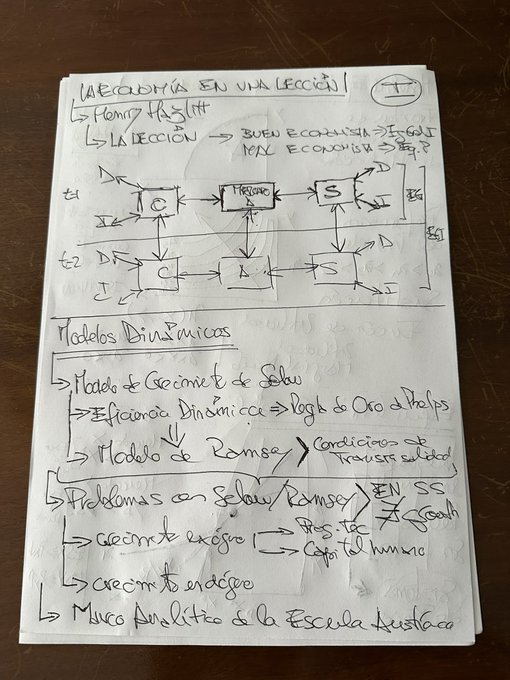 LA ECONOMÍA EN UNA LECCIÓN I
Henry Hazlitt
LA LECCIÓN → BUEN ECONOMISTA ⇒
MAL ECONOMISTA ⇒ Eq. P
D MERCADO D
t=1 C A S EG
I I
EGI
t=2 D C A S D
I I
Modelos Dinámicos
Modelo de Crecimiento de Solow
Eficiencia Dinámica ⇒ Regla de Oro de Phelps
Modelo de Ramsey > Condiciones de
Transversalidad
Problemas con Solow/Ramsey > EN SS
∄ growth
crecimiento exógeno Prog. tec
Capital humano
crecimiento endógeno
Marco Analítico de la Escuela Austríaca